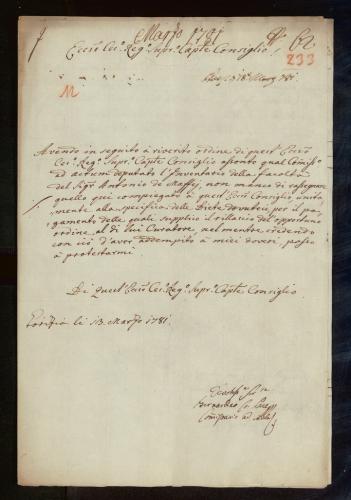 Marzo 1781
62
Eccso Ces. Reg. Supr. Capte Consiglio
233
12
Avendo in seguito à riverito ordine di quest' Eccso
Ces. Reg. Supr. Capte Consiglio assonto qual Comiss.
ad actum deputato l'Inventario della facoltà
del Sigr Antonio de Maffei, non manco di rassegnare
quello qui compiegato à quest' Eccso Consiglio, unita-
mente alla specifica delle Diete dovuteci per il pa-
gamento delle quali supplico il rillascio del opportuno
ordine, al di lui Curatore, nel mentre credendo
con ciò d'aver adempito à miei doveri, passo
à protestarmi
Di quest' Eccso Ces. Reg. Supr. Capte Consiglio
Gorizia li 13. Marzo 1781.
Bernardino
Comissario ad